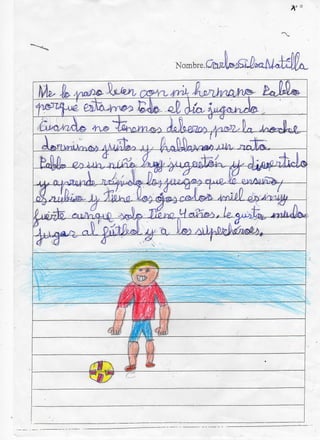 Nombre: Carlos Silva Matilla
Me lo paso bien con mi hermano Pablo
porque estamos todo el día jugando.
Cuando no tenemos deberes, por la noche
dormimos juntos y hablamos un rato.
Pablo es un niño muy juguetón y divertido
y aprende rápido los juegos que le enseño,
es rubio y tiene los ojos color miel es muy
fuerte aunque solo tiene 4 años. le gusta mucho
jugar al fútbol y a los superhéroes.